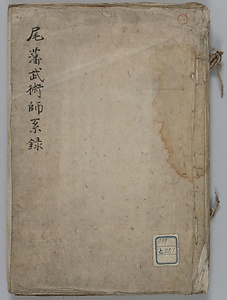 尾藩武術師系録